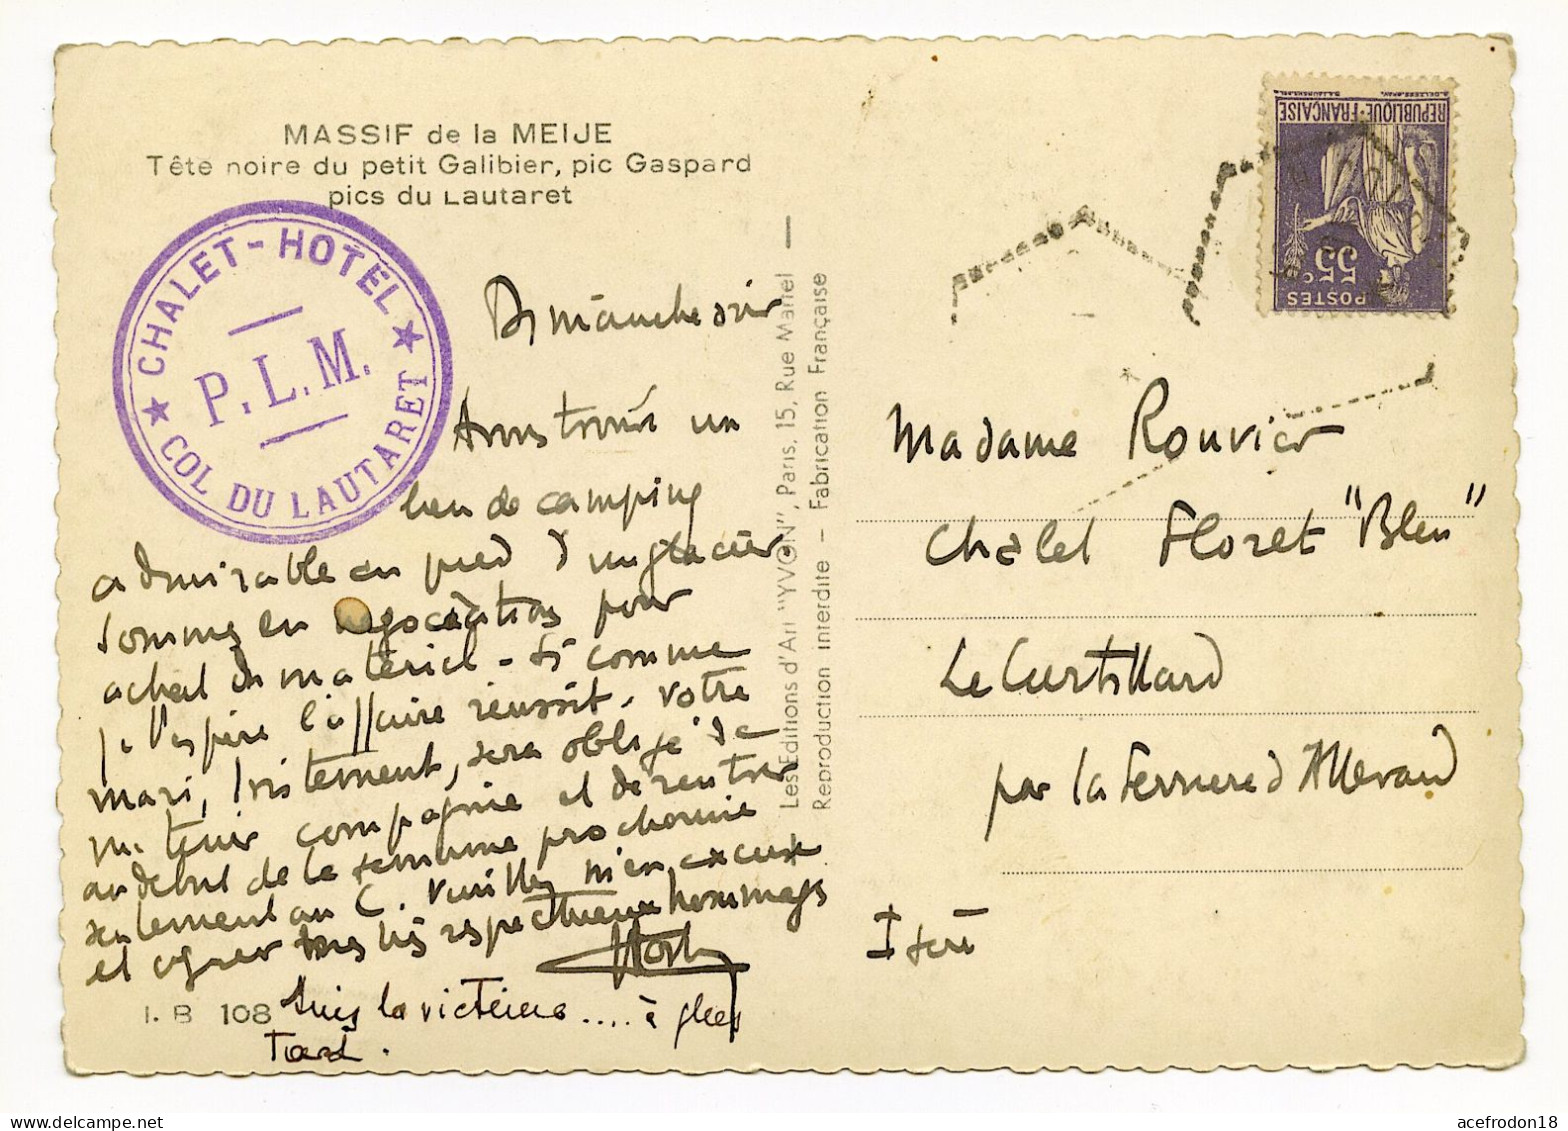 MASSIF de la MEIJE
Tête noire du petit Galibier, pic Gaspard
pics du Lautaret
CHALET-HOTEL
P.L.M.
COL DU LAUTARET
Dimanche soir
Avons trouvé un
lieu de camping
admirable au pied d'un glacier
sommes en négociations pour
achat du matériel - si comme
je l'espère l'affaire réussit. votre
mari, tristement, sera obligé de
me tenir compagnie et de rentrer
au début de la semaine prochaine
seulement au C. m'en excuse
et agréer mes très respectueux hommages
Suis la victime .... à plus
tard.
I. B 108
Les Editions d'Art "YVON", Paris, 15, Rue Martel
Reproduction interdite - Fabrication Française
REPUBLIQUE·FRANÇAISE
55c
POSTES
Madame Rouvier
Chalet Floret "Bleu"
Le Curtillard
par la Ferriere d'Allevard
Isère
acefrodon18